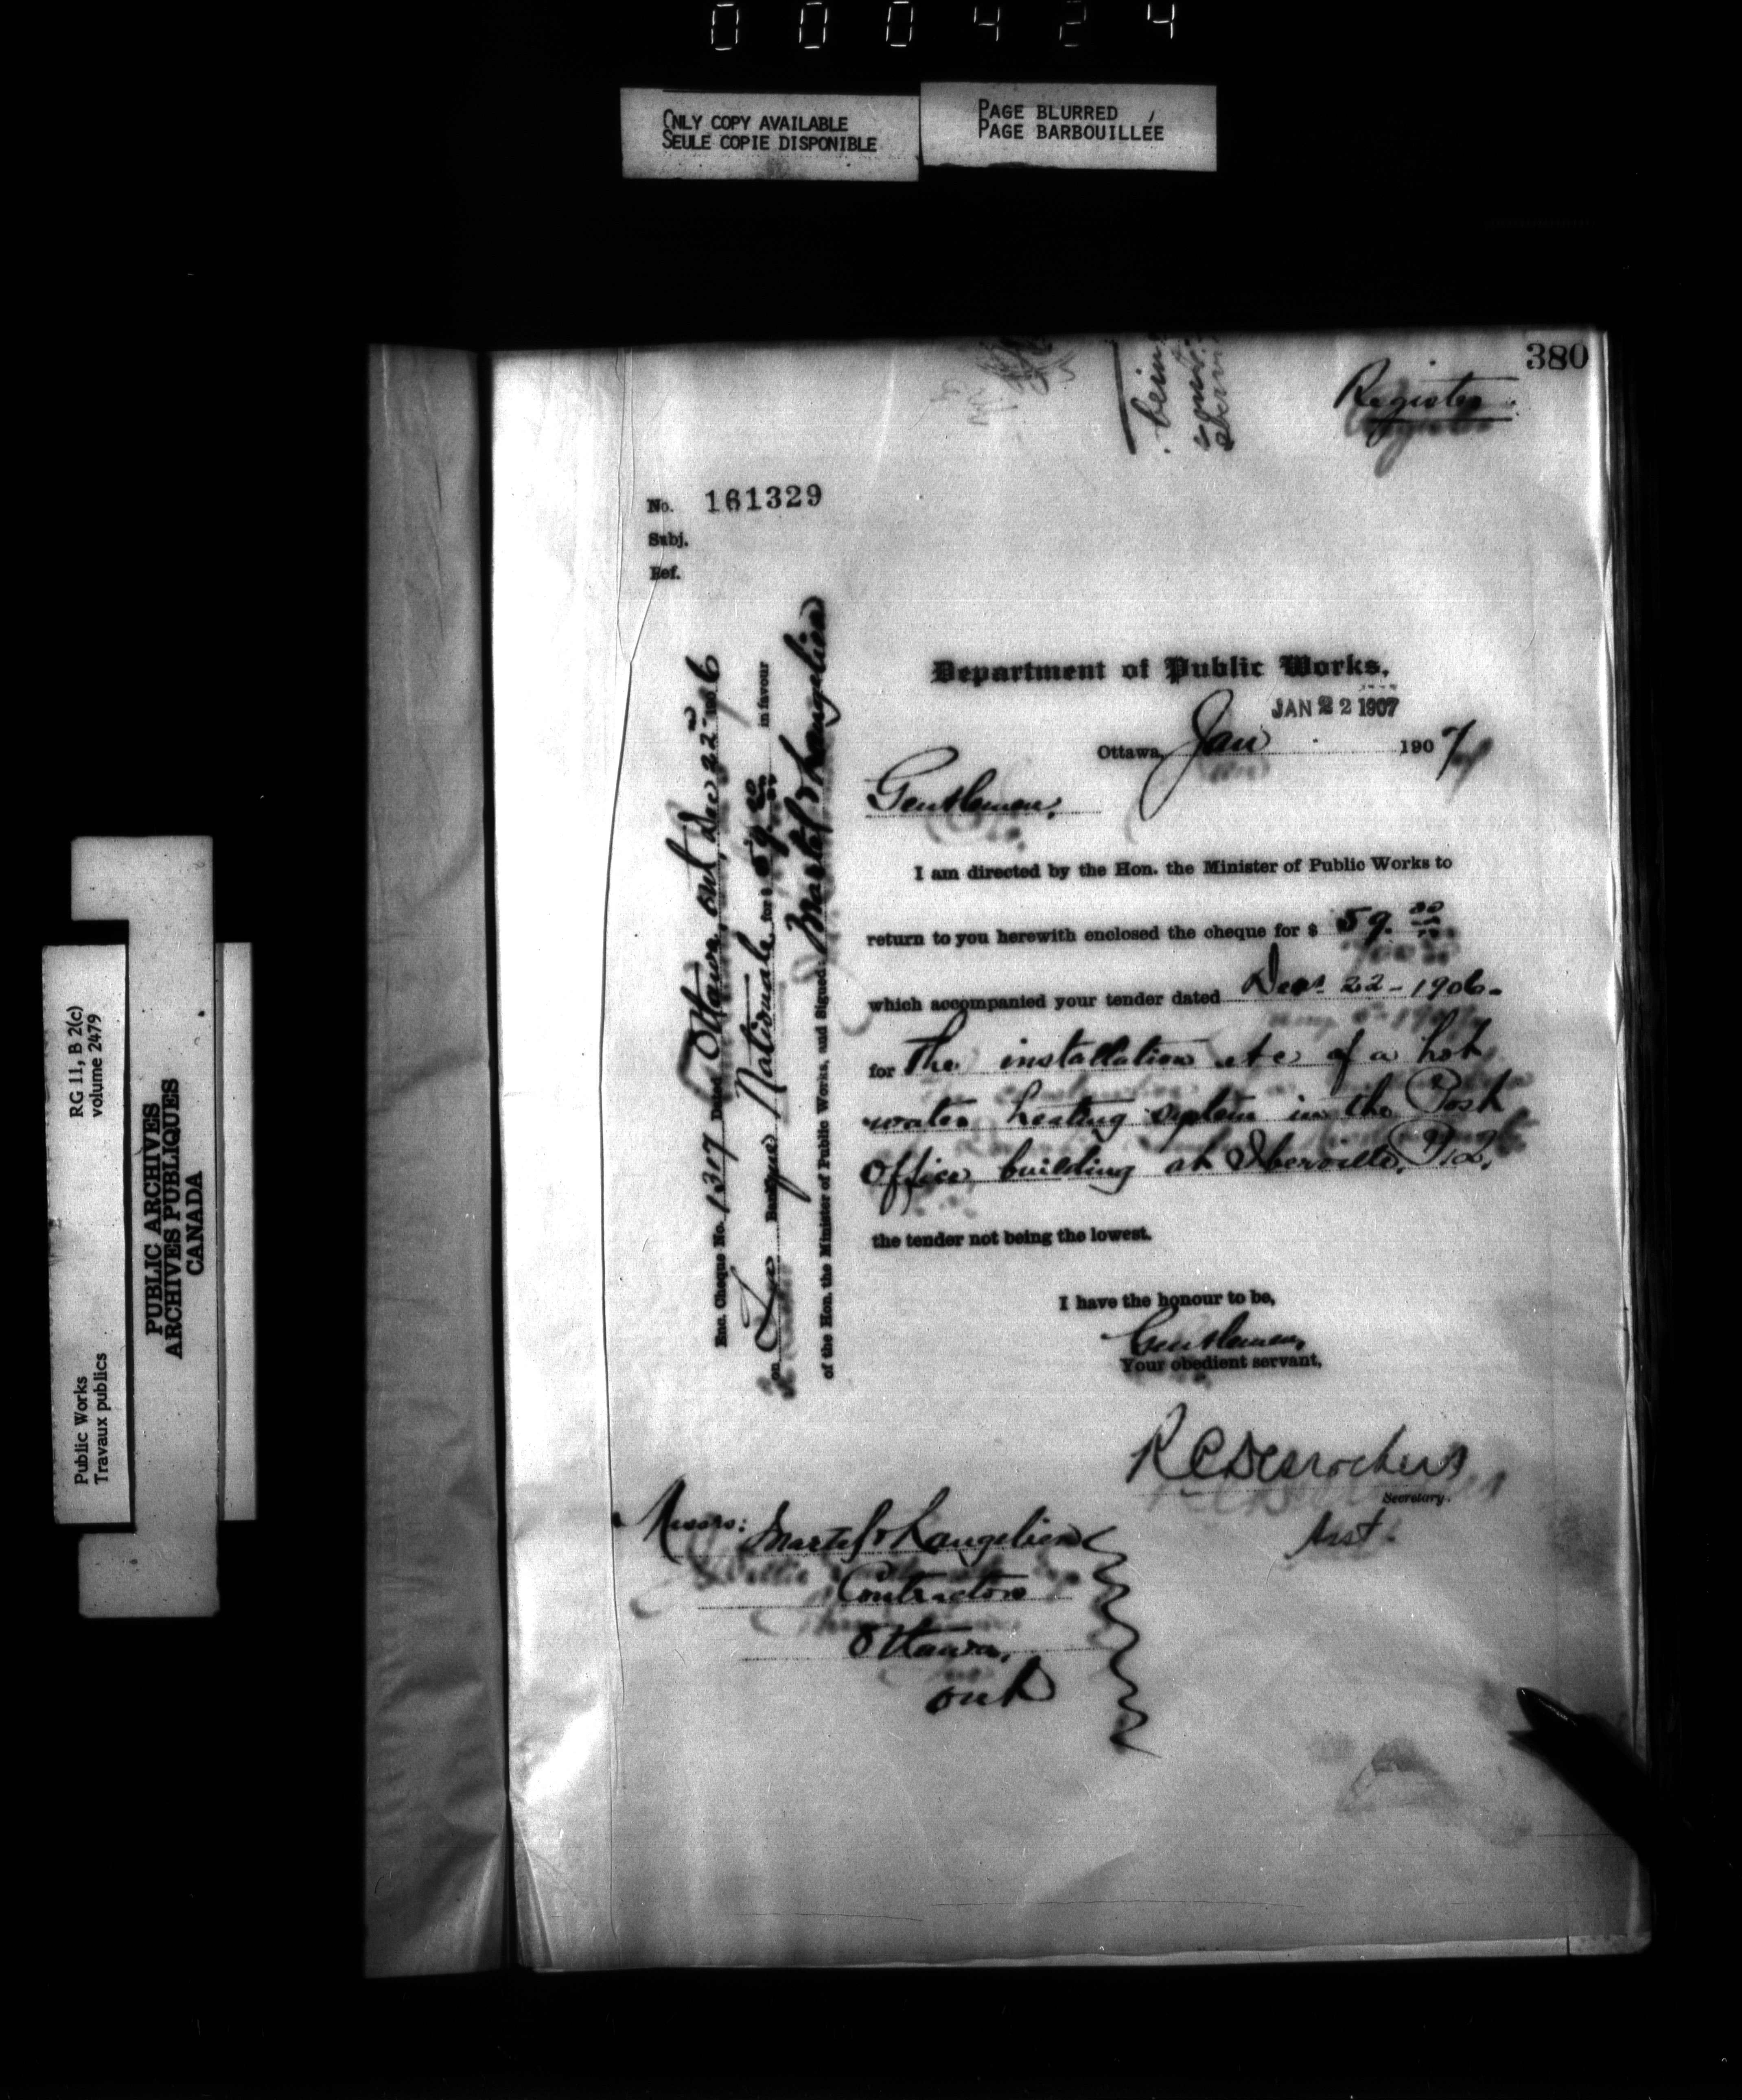 000424
ONLY COPY AVAILABLE
SEULE COPIE DISPONIBLE
PAGE BLURRED
PAGE BARBOUILLÉE
380
Register
No. 161329
Subj.
Ref.
Department of Public Works.
JAN 22 1907
Ottawa, Jan 1907
Gentlemen,
I am directed by the Hon. the Minister of Public Works to
return to you herewith enclosed the cheque for $ 59.
which accompanied your tender dated Decr 22-1906.
for The installation etc of a hot
water heating system in the Post
Office building at Iberville, P.Q.
the tender not being the lowest.
I have the honour to be,
Gentlemen,
Your obedient servant,
R C Desrochers
Secretary.
Asst.
Messrs: Martel & Langelier
Contractors
Ottawa,
Ont
Enc. Cheque No. 1317 Dated Ottawa, Ont, Dec 22 1906
on La Banque Nationale for $ 59. in favour
of the Hon. the Minister of Public Works, and Signed Martel & Langelier
RG 11, B 2(c)
volume 2479
Public Works
Travaux publics
PUBLIC ARCHIVES
ARCHIVES PUBLIQUES
CANADA